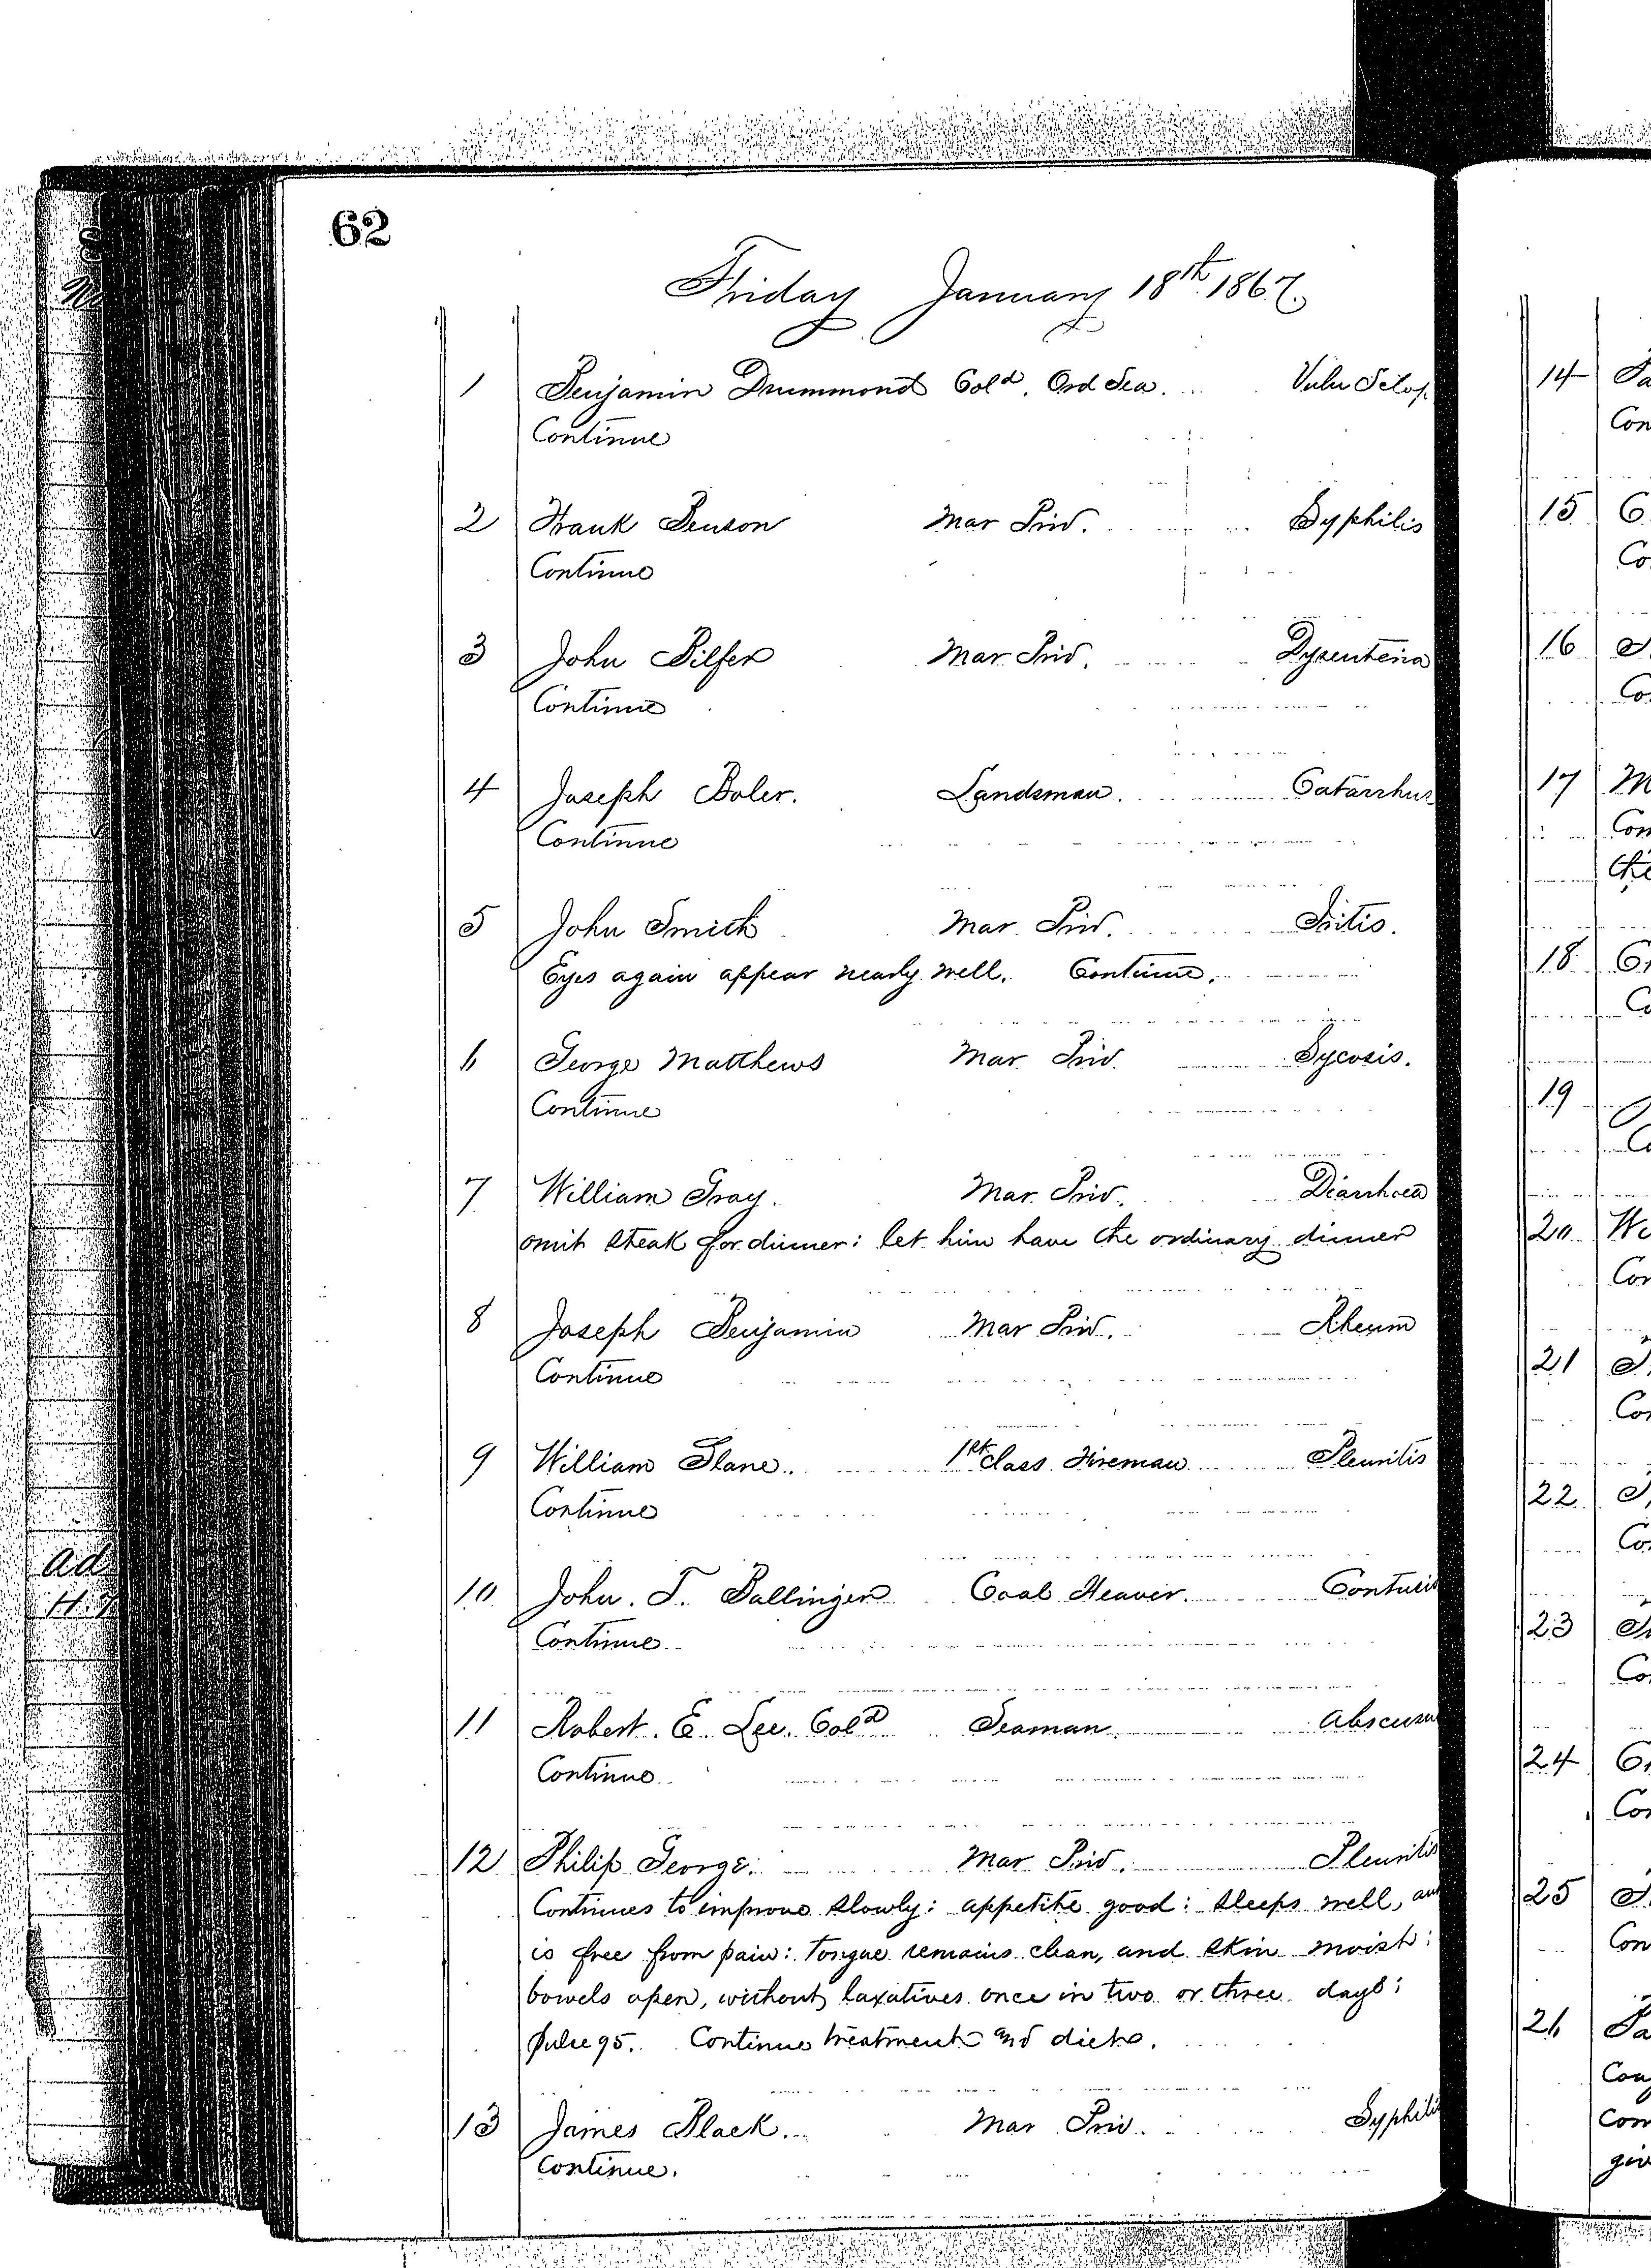 62
Friday January 18th 1867.
1 Benjamin Drummond Cold. Ord Sea. Vuln Sclop
Continue
2 Frank Benson Mar Priv. Syphilis
Continue
3 John Pilfer Mar Priv. Dysenteria
Continue
4 Joseph Boler. Landsman. Catarrhus
Continue
5 John Smith Mar. Priv. Iritis.
Eyes again appear nearly well. Continue.
6 George Matthews Mar. Priv. Sycosis.
Continue
7 William Gray. Mar. Priv. Diarrhoea
omit steak for dinner: let him have the ordinary dinner
8 Joseph Benjamin Mar Priv. Rheum
Continue
9 William Slane. 1st Class Fireman Pleuritis
Continue
10 John. T. Ballinger Coal Heaver. Contusio
Continue
11 Robert. E. Lee. Cold Seaman. Abscessu
Continue
12 Philip George. Mar Priv. Pleuritis
Continues to improve slowly: appetite good: sleeps well, an
is free from pain: Tongue remains clean, and skin moist:
bowels open, without laxatives once in two or three days:
Pulse 95. Continue treatment and diet.
13 James Black. Mar Priv. Syphilis
Continue.
14
Con
15
Co
16
Co
17 M
Con
the
18
Co
19
20 We
Con
21
Con
22
Co
23
Co
24
Con
25
Con
26
Con
com
giv
ad